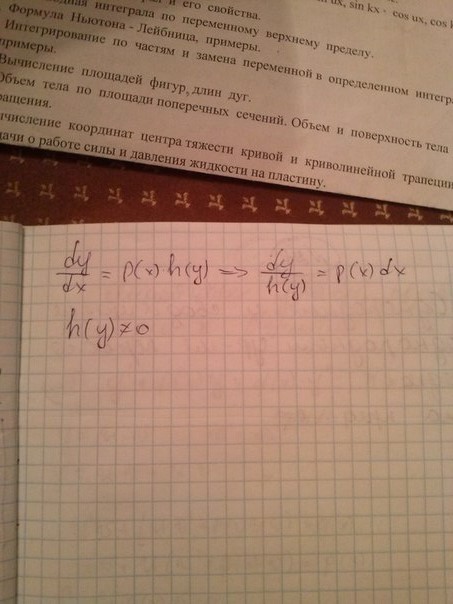 ux, sin kx · cos ux, cos
и его свойства.
интеграла по переменному верхнему пределу.
Формула Ньютона - Лейбница, примеры.
Интегрирование по частям и замена переменной в определенном
примеры.
Вычисление площадей фигур, длин дуг.
Объем тела по площади поперечных сечений. Объем и поверхность тела
вычисление координат центра тяжести кривой и криволинейной трапеции
о работе силы и давления жидкости на пластину.
dy/dx = p(x) h(y) => dy/h(y) = p(x) dx
h(y) ≠ 0